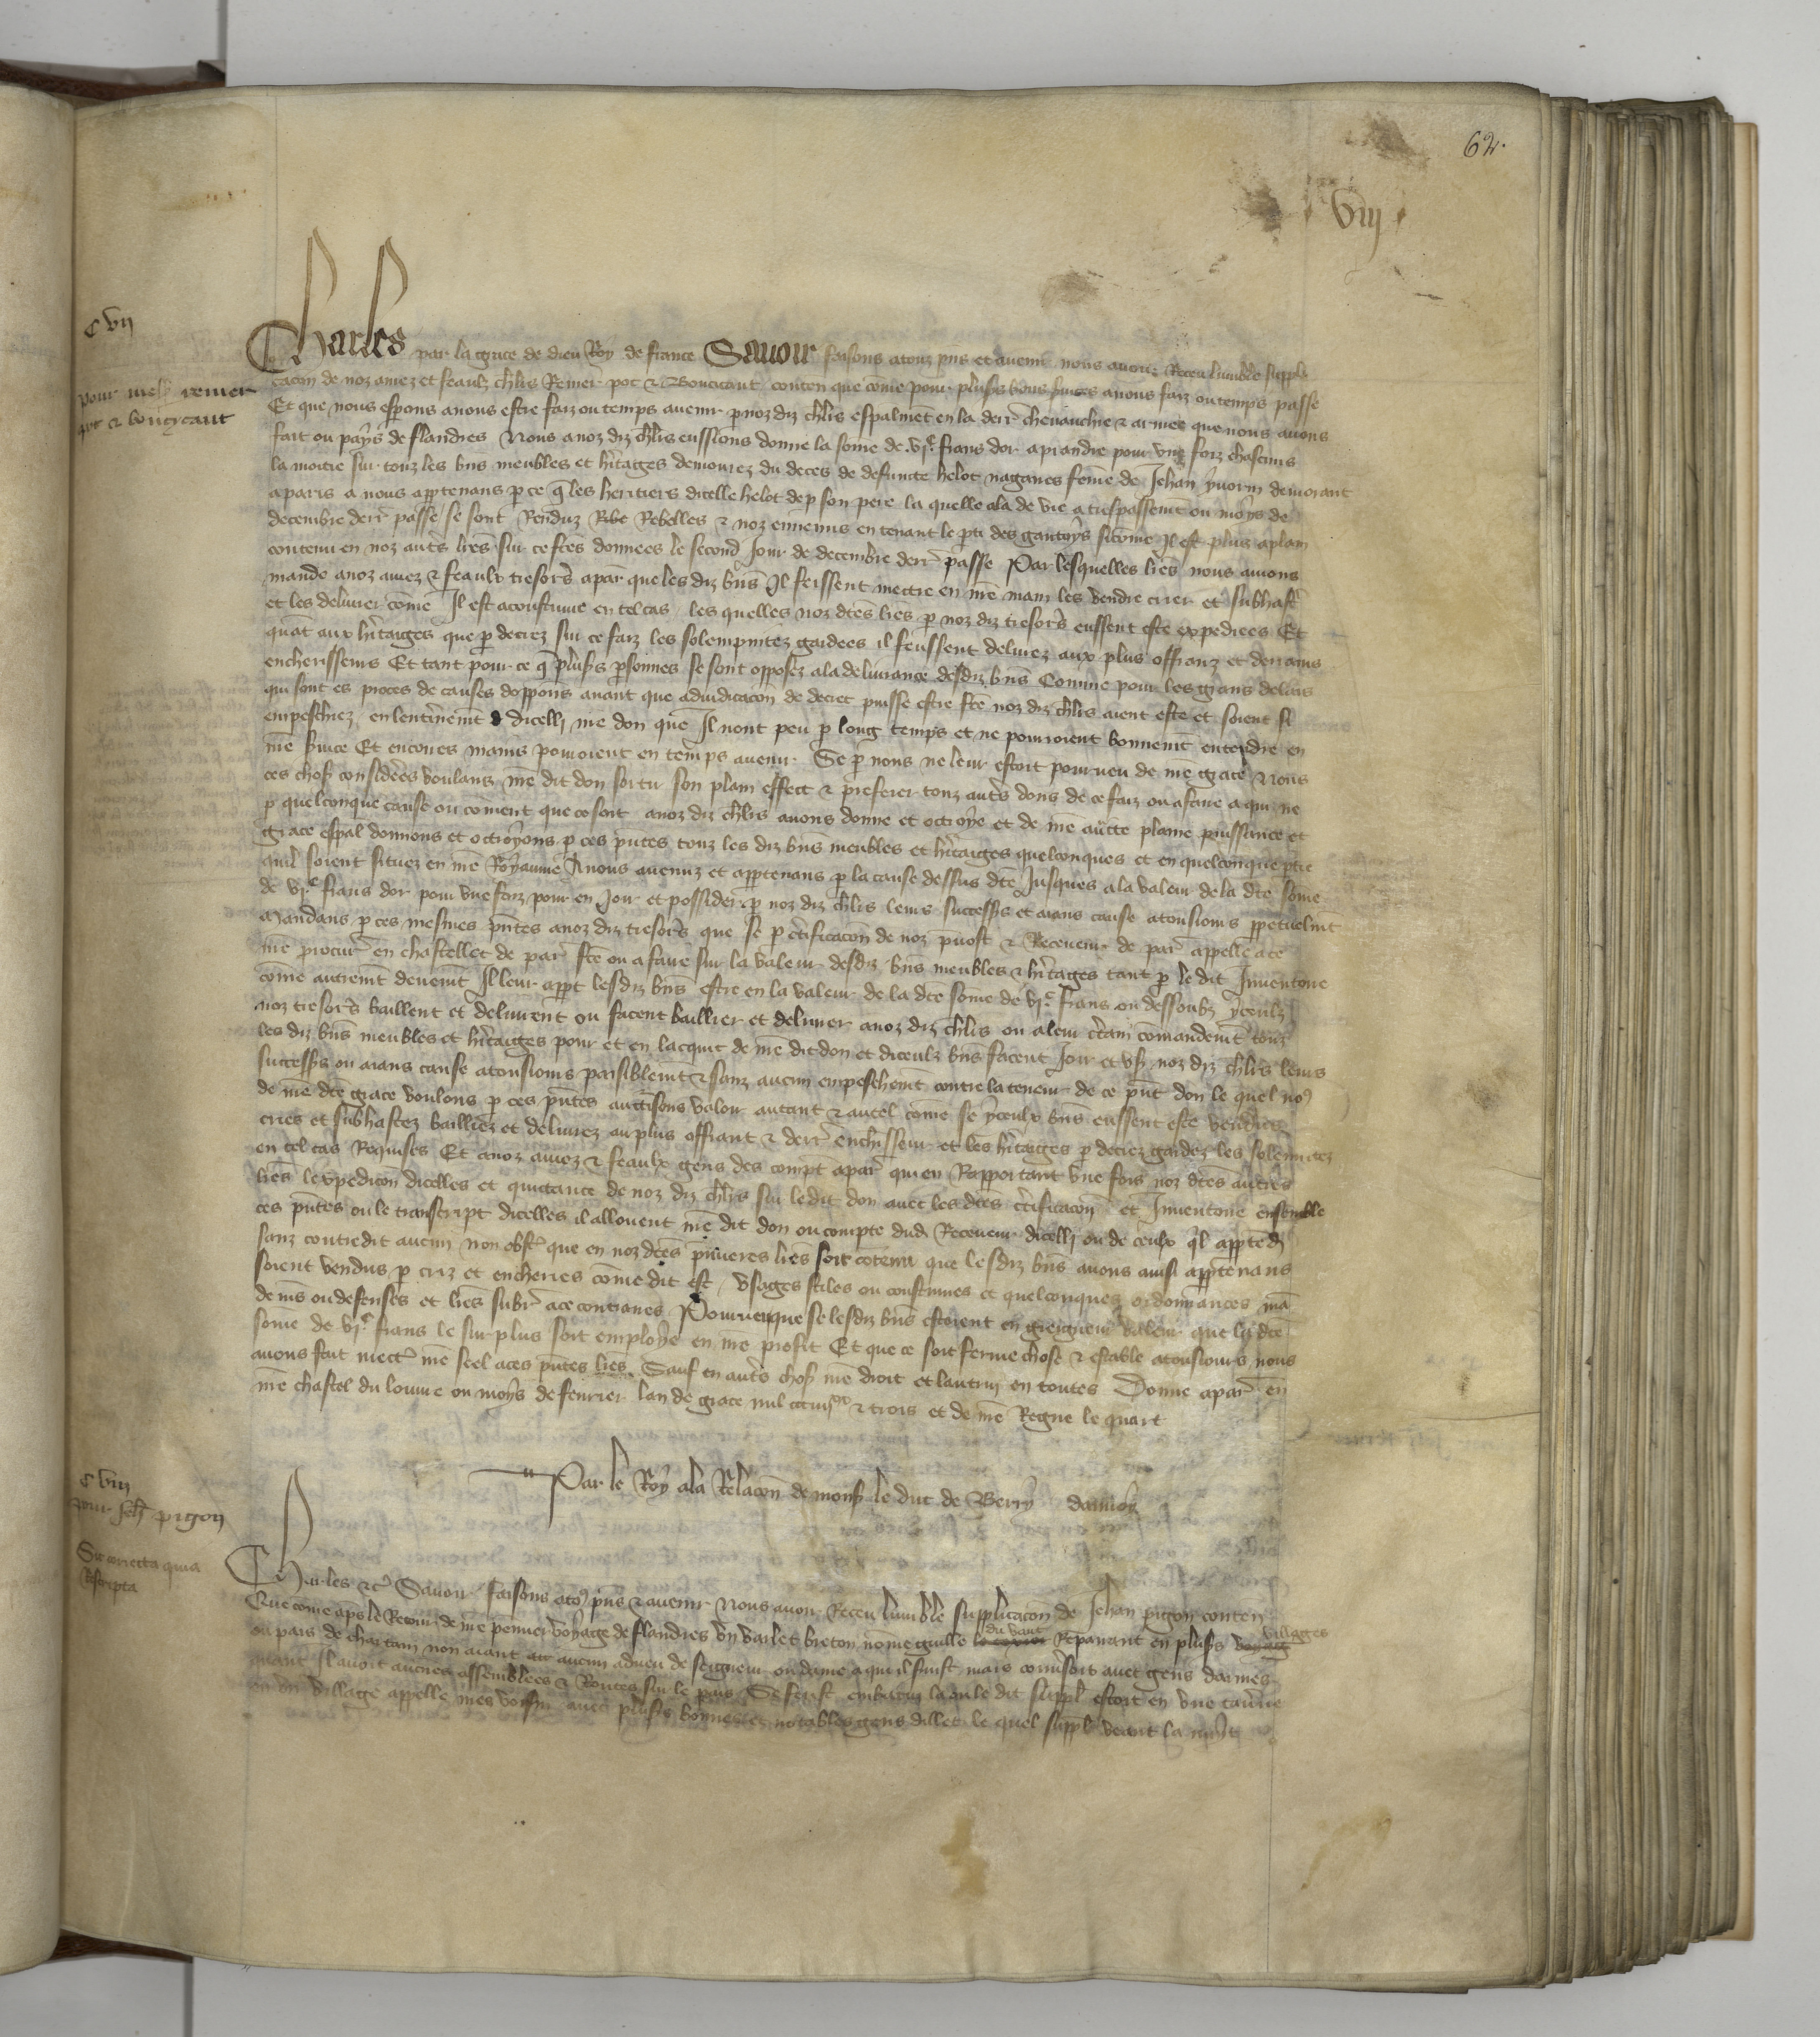 62.
viij
C vij
pour mess remer
pot & boucicaut
Charles par la grace de dieu Roy de france Savoir faisons a touz pns et avenir nous avoir Receu lumble suppli
cacon de noz amez et feaulx chlrs Remer pot & Boucicaut conten que come pour plusrs bons svices a nous faiz ou temps passe
Et que nous esperons a nous estre faiz ou temps avenir p noz diz chlrs espalment en la derr chevauchie & armee que nous avons
fait ou pays de flandres Nous a noz diz chlrs eussions donne la some de vjc frans dor a prandre pour une foiz chascuns
la moitie sur touz les bns meubles et hritages demourez du deces de defuncte helot naganes feme de Jehan yvorin demorant
a paris a nous apptenans p ce q les heritiers dicelle helot dep son pere la quelle ala de vie a trespassemt ou moys de
decembre derr passe se sont Renduz Rebelles & noz ennemis en tenant le pti des gantoys sicome Il est plus a plain
contenu en noz autrs lres sur ce fces donnees le second Jour de decembre derr passe Par lesquelles lres nous avions
mande a noz amez & feaulx tresorrs a par que les diz bns Il feissent mectre en nre main les vendre crier et subhastr
et les delivrer come Il est acoustume en tel cas les quelles noz dces lres p noz diz tresorrs eussent este expediees Et
quant aux hritaiges que p decrez sur ce faiz les solempnitez gardees il feussent delivrez aux plus offranz et derrains
encherisseurs Et tant pour ce q plusrs psonnes se sont opposez a la delivrance desdiz bns Comme pour les grans delais
qui sont es proces de causes doppons avant que adiudicacon de decret puisse estre fce noz diz chlrs aient este et soient si
empeschiez en lenterinemt dicelli nre don que Il nont peu p long temps et ne pourroient bonnemt entendre en
nre svice Et encores mains pourroient en temps avenir Se p nous ne leur estoit pourveu de nre grace Nous
ces choses considerees voulans nre dit don sortir son plain effect & preferer touz autrs dons de ce faiz ou a faire a qui ne
p quelconque cause ou coment que ce soit a noz diz chlrs avons donne et octroye et de nre aucte plaine puissance et
grace espal donnons et octroyons p ces pntes touz les diz bns meubles et hritaiges quelconques et en quelconque ptie
quil soient situez en nre Royaume A nous avenuz et apptenans p la cause dessus dce Jusques a la valeur de la dce some
de vjc frans dor pour une foiz pour en Joir et possider p noz diz chlrs leurs successrs et aians cause a tousiours ppetuelmt
Mandans p ces mesmes pntes a noz diz tresorrs que se p crtificacon de noz pvost & Receveur de par appelle a ce
nre procur en chastellet de par fce ou a faire sur la valeur desdiz bns meubles & hritages tant p le dit Inventoire
come autremt deuemt Il leur appt lesdiz bns estre en la valeur de la dce some de vjc frans ou dessoubz yceulx
noz tresorrs baillent et delivrent ou facent baillier et delivrer a noz diz chlrs ou a leur crtain comandemt touz
les diz bns meubles et hritaiges pour et en lacquit de nre dit don et diceulx bns facent Joir et user noz diz chlrs leurs
successrs ou aians cause a tousiours paisiblemt & sanz aucun empeschemt contre la teneur de ce pnt don le quel nos
de nre dce grace voulons p ces pntes auctisons valoir autant & autel come se yceulx bns eussent este venduz
criez et subhastez bailliez et delivrez au plus offrant & derr encherisseur et les hritaiges p decrez gardez les solennitez
en tel cas Requises Et a noz amez & feaulx gens des compt a par qui en Rapportant une fois noz dces autres
lres lexpedicon dicelles et quictance de noz diz chlrs sur le dit don avec les dces crtificacon et Inventoire ensemble
ces pntes ou le transcript dicelles il allouent nre dit don ou compte dud Receveur dicelli ou de ceulx ql apptedr
sanz contredit aucun non obstr que en noz dces pmieres lres soit contenu que lesdiz bns a nous ainsi apptenans
soient vendus p criz et encheries come dit est / Usages stiles ou coustumes et quelconques ordonnances man
demns ou defenses et lres subr a ce contraires Pourveu que se lesdiz bns estoient en greigneur valeur que la dce
some de vjc frans le surplus soit employe en nre profit Et que ce soit ferme chose & estable a tousiours nous
avons fait mectr nre seel a ces pntes lres Sauf en autrs choses nre droit et lautruy en toutes Donne a par en
nre chastel du louvre ou moys de fevrier lan de grace mil ccciiijxx & trois et de nre Regne le quart
Par le Roy a la Relacon de mons le duc de Berry damoy
C viij
pour Jeh pigon
Sic correcta quia
Rescripta
Charles &c Savoir faisons a tos pns & avenir Nous avoir Receu lumble supplicacon de Jehan pigon conten
Que come aps le Retour de nre pemier voyage de flandres un varlet breton nome guille du vant Repairant en plusrs villages
ou pais de chartain non aiant aucun adveu de seigneur ou dame a qui il svist mais conversoit avec gens darmes
avant Il avoit aucunes assemblees & Routes sur le pais Se feust embatu la ou le dit suppl estoit en une tavrne
en un village appelle mes voisin avec plusrs bonnestes notables gens dillec le quel suppl veant la